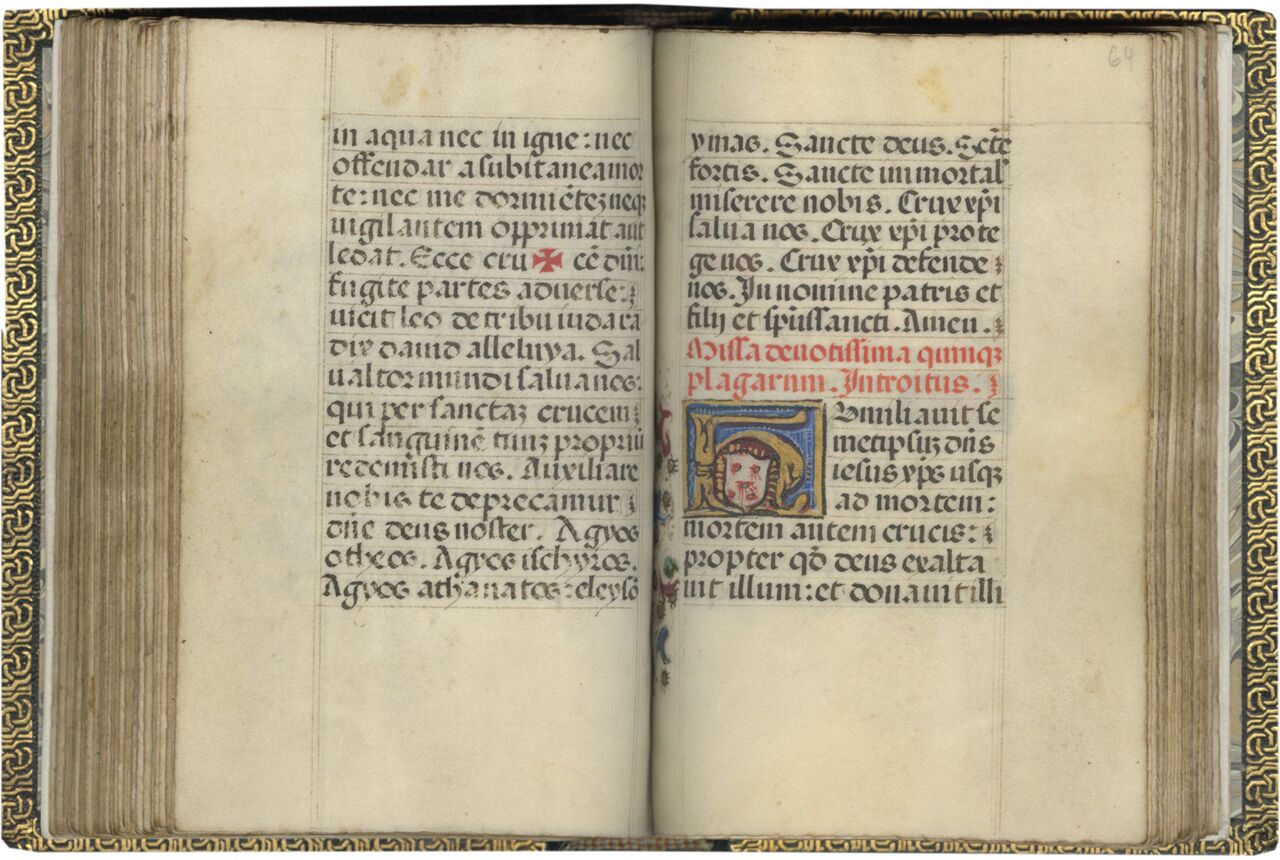 in aqua nec in igne: nec
offendar a subitanea mor
te: nec me dormiētez neq3
vigilantem opprimat aut
ledat. Ecce cru✠ cē dn̄i:
fugite partes aduerse:
uicit leo de tribu iuda ra
dix dauid alleluya. Sal
ualtor mundi salua nos:
qui per sanctaz crucem
et sanguinē tuuz propriū
redemisti nos. Auxiliare
nobis te deprecamur
dn̄e deus noster. Agyos
otheos. Agyos ischyros.
Agyos athanatos: eleysō
64
ymas. Sancte deus. Sctē
fortis. Sancte inmortal
miserere nobis. Crux xp̄i
salua nos. Crux xp̄i prote
ge nos. Crux xp̄i defende
nos. In nomine patris et
filij et sp̄ussancti. Amen.
Missa deuotissima quinq3
plagarum. Introitus.
Humiliauit se
metipsuz dn̄s
iesus xp̄s usq3
ad mortem:
mortem autem crucis:
propter qd̄ deus exalta
uit illum: et donauit illi